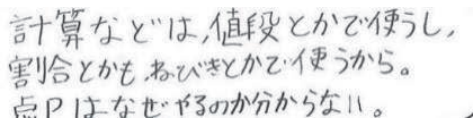 計算などは,値段とかで使うし,
割合とかも ねびきとかで使うから。
点Pはなぜやるのか分からない。